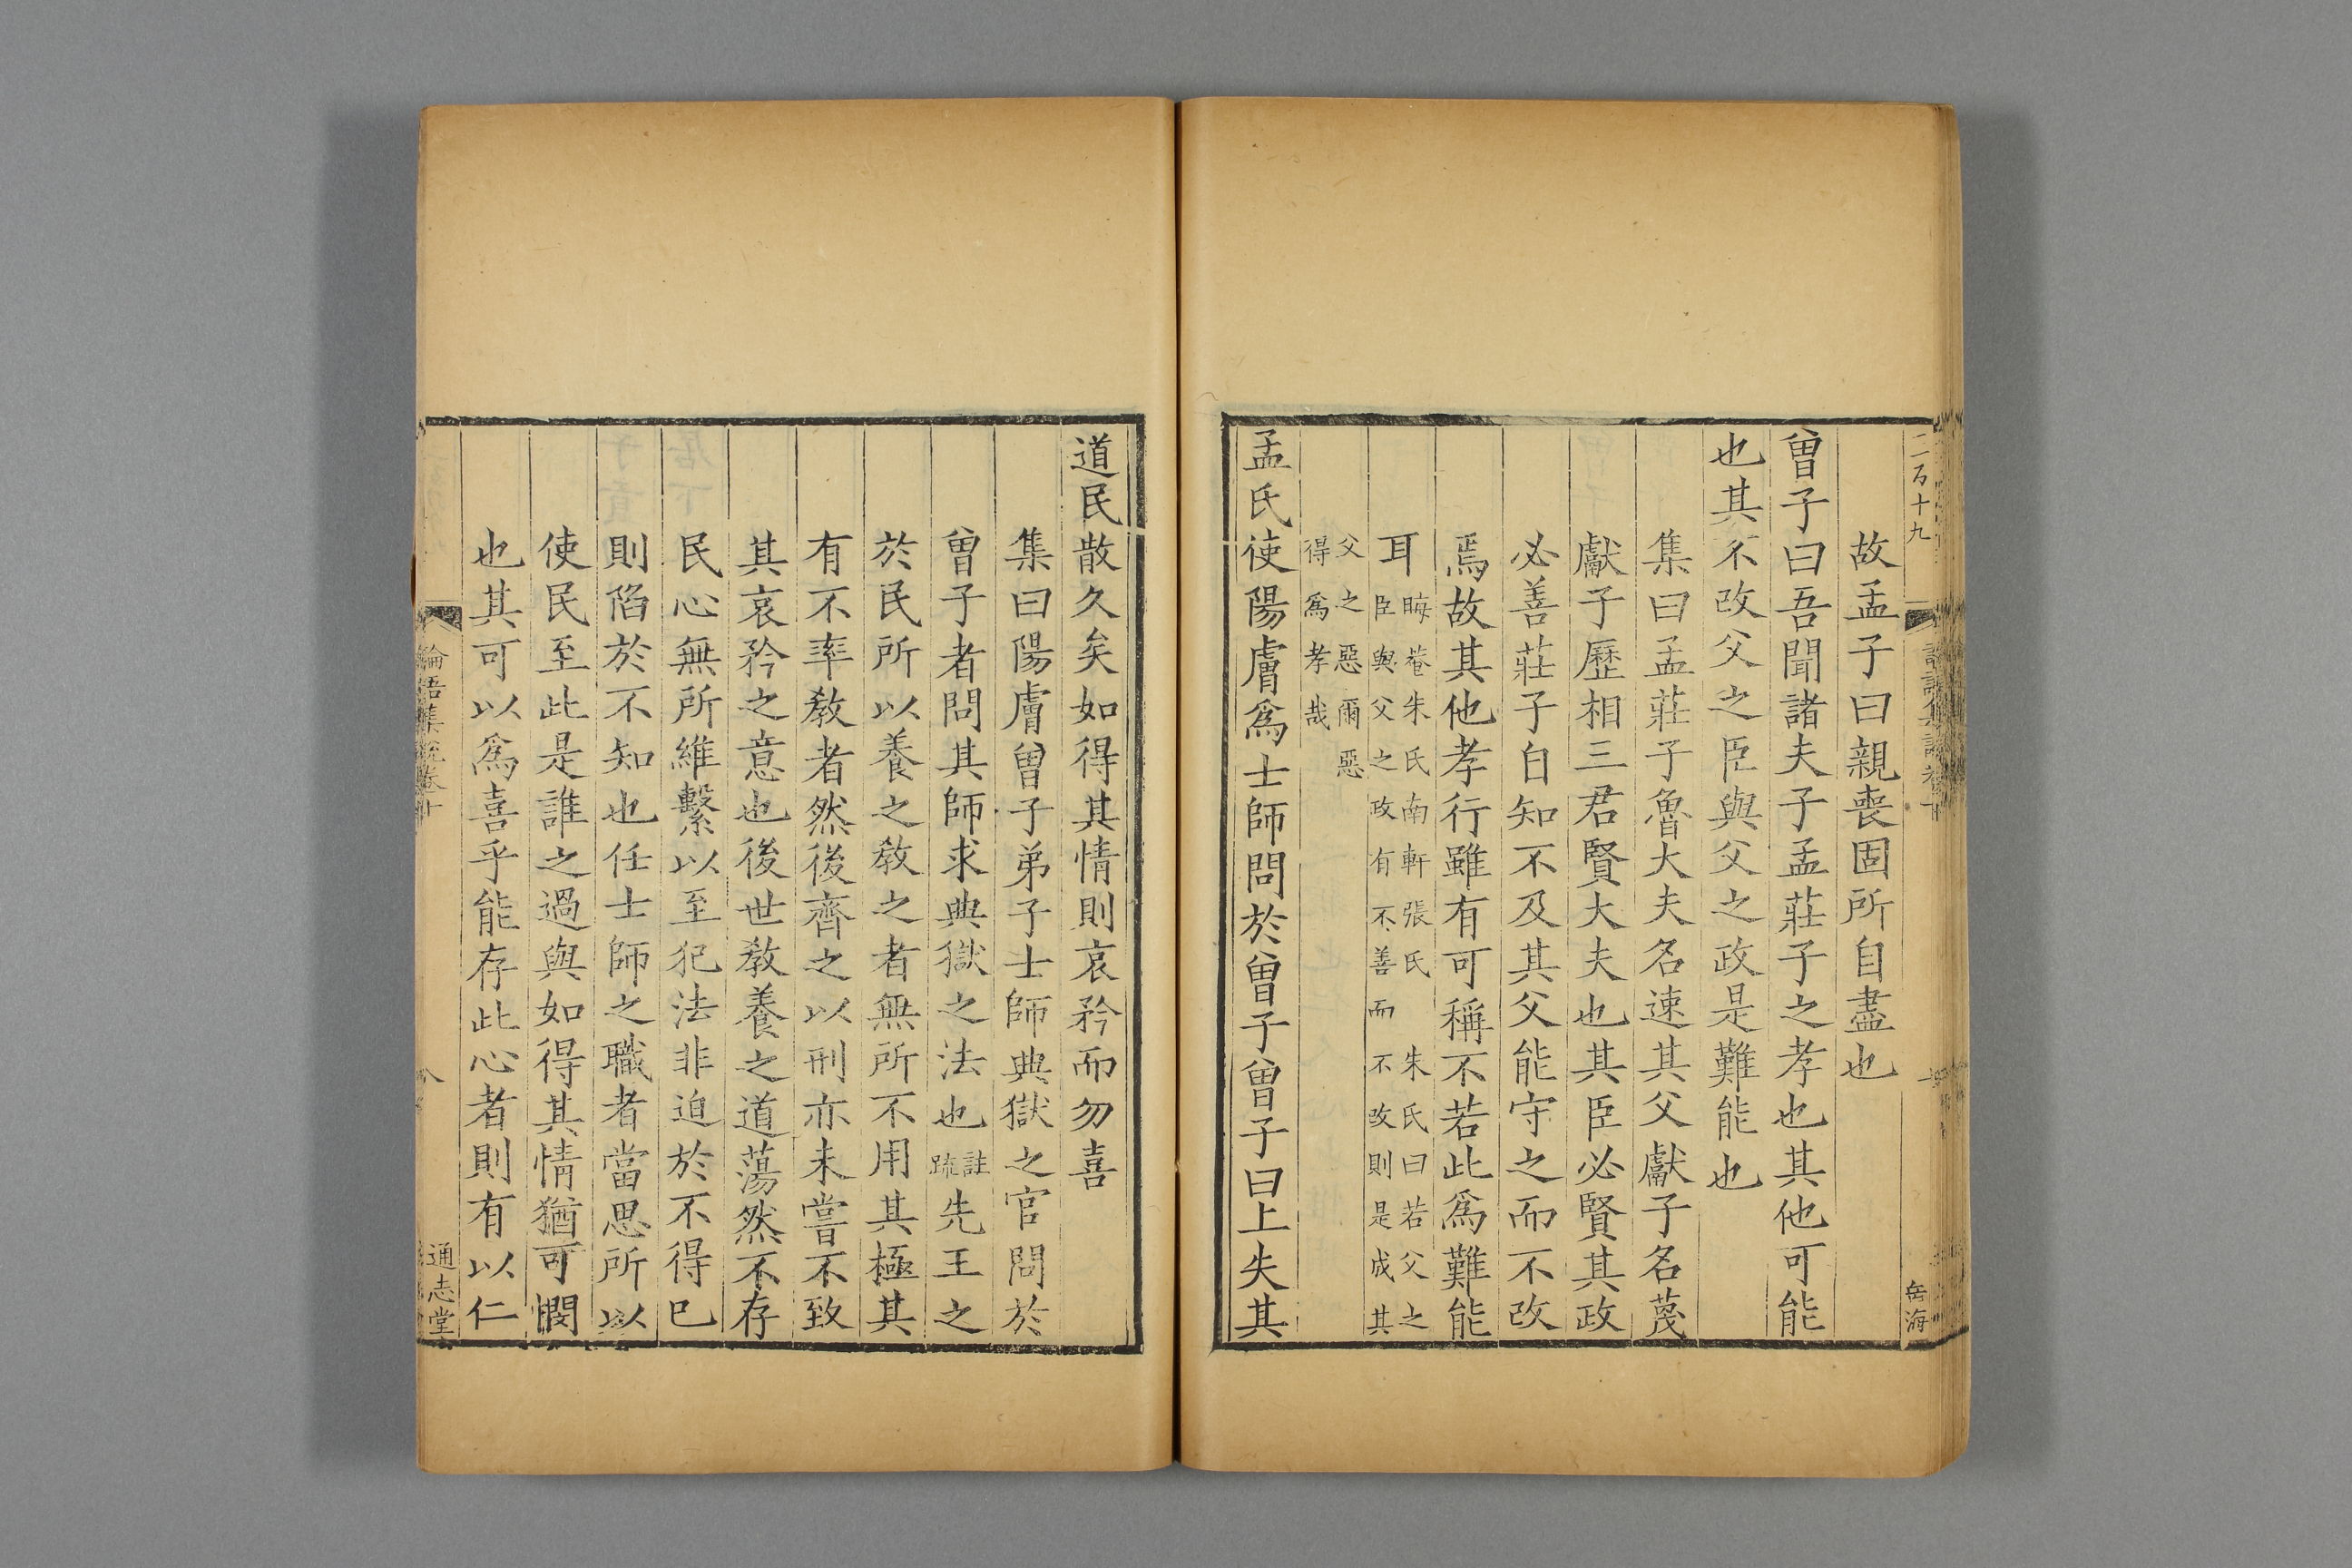 二百十九
岳海
故孟子曰親喪固所自盡也
曾子曰吾聞諸夫子孟莊子之孝也其他可能
也其不改父之臣與父之政是難能也
集曰孟莊子魯大夫名速其父獻子名蔑
獻子歷相三君賢大夫也其臣必賢其政
必善莊子自知不及其父能守之而不改
焉故其他孝行雖有可稱不若此爲難能
耳
晦菴朱氏南軒張氏 朱氏曰若父之
臣與父之政有不善而不改則是成其
父之惡爾惡
得爲孝哉
孟氏使陽膚爲士師問於曾子曾子曰上失其
道民散久矣如得其情則哀矜而勿喜
集曰陽膚曾子弟子士師典獄之官問於
曾子者問其師求典獄之法也註疏先王之
於民所以養之敎之者無所不用其極其
有不率敎者然後齊之以刑亦未嘗不致
其哀矜之意也後世敎養之道蕩然不存
民心無所維繫以至犯法非迫於不得已
則陷於不知也任士師之職者當思所以
使民至此是誰之過與如得其情猶可憫
也其可以爲喜乎能存此心者則有以仁
論語集說卷十
八
通志堂